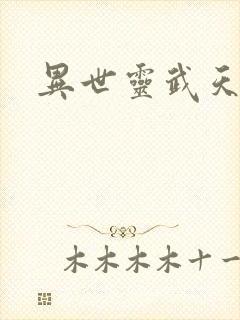 異世靈武天
木木木木十一